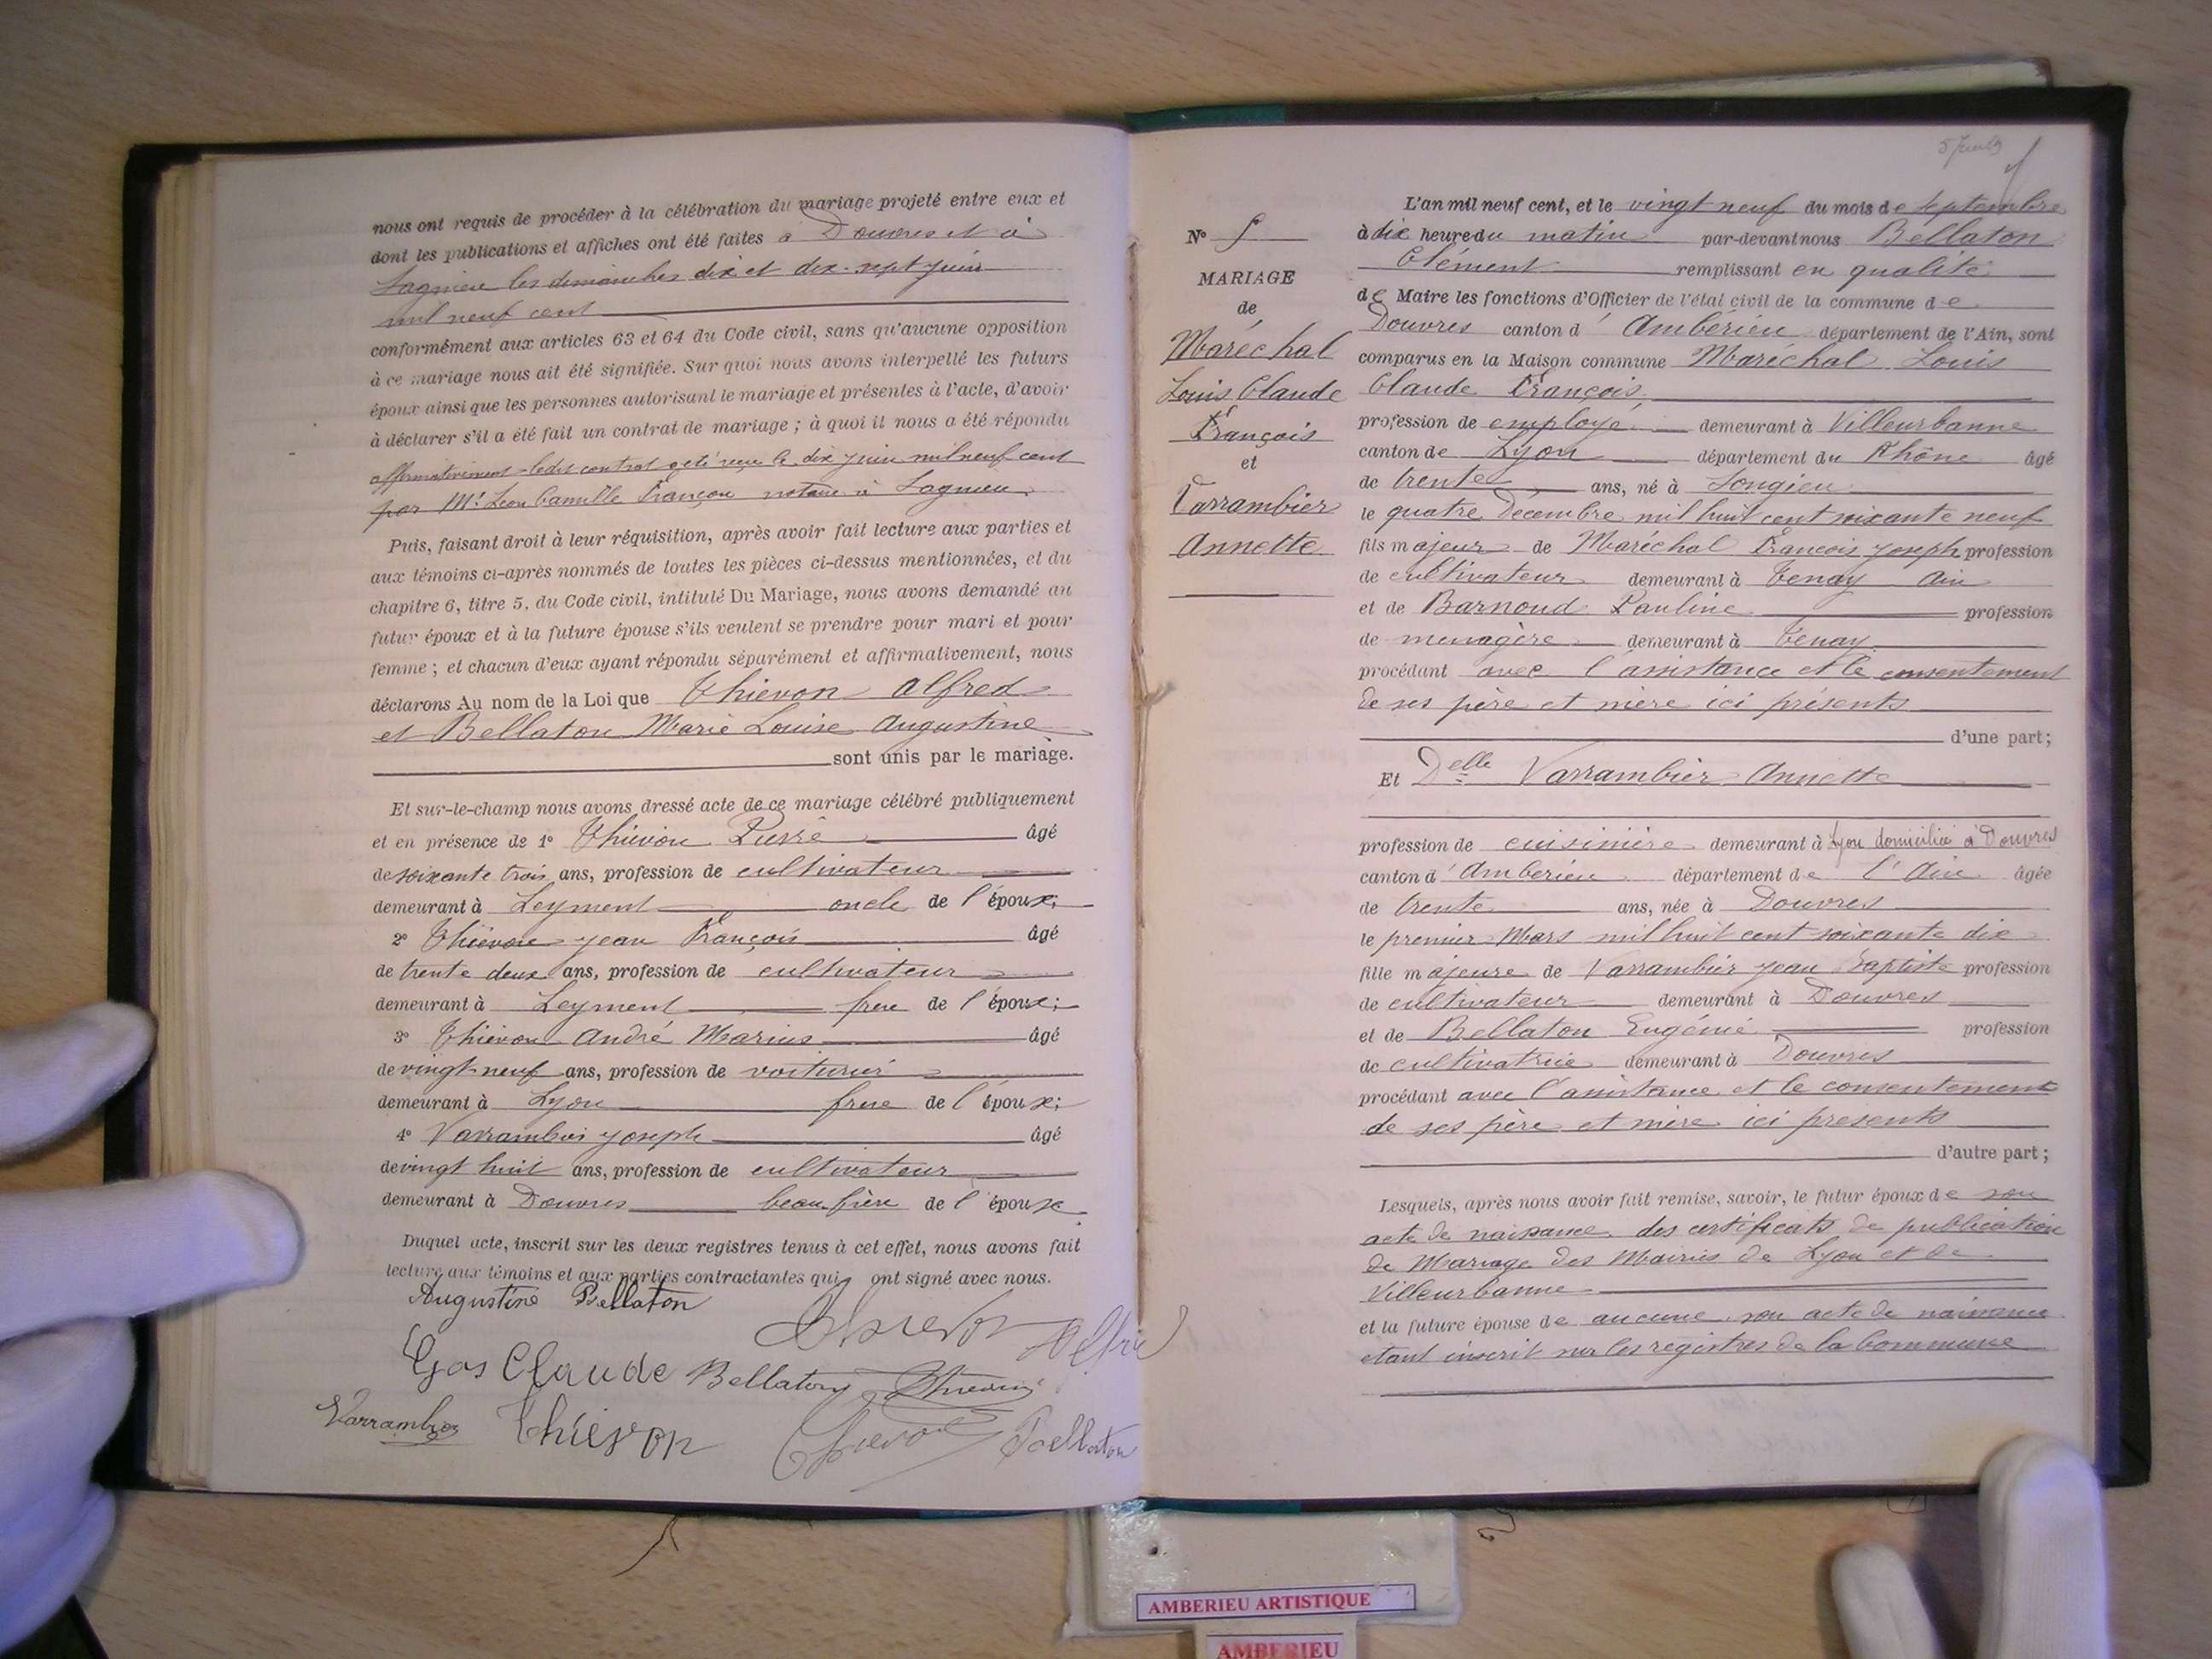 nous ont requis de procéder à la célébration du mariage projeté entre eux et
dont les publications et affiches ont été faites à Douvres et à
Lagnieu les dimanches dix et dix-sept juin
mil neuf cent
conformément aux articles 63 et 64 du Code civil, sans qu'aucune opposition
à ce mariage nous ait été signifiée. Sur quoi nous avons interpellé les futurs
époux ainsi que les personnes autorisant le mariage et présentes à l'acte, d'avoir
à déclarer s'il a été fait un contrat de mariage ; à quoi il nous a été répondu
affirmativement ledit contrat a été reçu le dix juin mil neuf cent
par Me Léon Camille Françon notaire à Lagnieu
Puis, faisant droit à leur réquisition, après avoir fait lecture aux parties et
aux témoins ci-après nommés de toutes les pièces ci-dessus mentionnées, et du
chapitre 6, titre 5, du Code civil, intitulé Du Mariage, nous avons demandé au
futur époux et à la future épouse s'ils veulent se prendre pour mari et pour
femme ; et chacun d'eux ayant répondu séparément et affirmativement, nous
déclarons Au nom de la Loi que Thievon Alfred
et Bellaton Marie Louise Augustine
sont unis par le mariage.
Et sur-le-champ nous avons dressé acte de ce mariage célébré publiquement
et en présence de 1° Thievon Pierre âgé
de soixante trois ans, profession de cultivateur
demeurant à Leyment oncle de l'époux;
2° Thievon Jean François âgé
de trente deux ans, profession de cultivateur
demeurant à Leyment frere de l'époux;
3° Thievon André Marius âgé
de vingt-neuf ans, profession de voiturier
demeurant à Lyon frere de l'époux;
4° Varrambier Joseph âgé
de vingt huit ans, profession de cultivateur
demeurant à Douvres beau-frère de l'épouse
Duquel acte, inscrit sur les deux registres tenus à cet effet, nous avons fait
lecture aux témoins et aux parties contractantes qui ont signé avec nous.
Augustine Bellaton
Thievon Alfred
Gos Claude Bellaton Thievon
Varrambier Thievon Thievon Bellaton
N° 5
MARIAGE
de
Maréchal
Louis Claude
François
et
Varrambier
Annette
L'an mil neuf cent, et le vingt neuf du mois de septembre
à dix heure du matin par-devant nous Bellaton
Clément remplissant en qualité
de Maire les fonctions d'Officier de l'état civil de la commune de
Douvres canton d'Ambérieu département de l'Ain, sont
comparus en la Maison commune Maréchal Louis
Claude François
profession de employé demeurant à Villeurbanne
canton de Lyon département du Rhône âgé
de trente ans, né à Songieu
le quatre Décembre mil huit cent soixante neuf
fils majeur de Maréchal François Joseph profession
de cultivateur demeurant à Tenay Ain
et de Barnoud Pauline profession
de menagère demeurant à Tenay
procédant avec l'assistance et le consentement
de ses père et mère ici présents
d'une part;
Et Delle Varrambier Annette
profession de cuisinière demeurant à Lyon domiciliée à Douvres
canton d'Ambérieu département de l'Ain âgée
de trente ans, née à Douvres
le premier Mars mil huit cent soixante dix
fille majeure de Varrambier Jean Baptiste profession
de cultivateur demeurant à Douvres
et de Bellaton Eugénie profession
de cultivatrice demeurant à Douvres
procédant avec l'assistance et le consentement
de ses père et mère ici presents
d'autre part;
Lesquels, après nous avoir fait remise, savoir, le futur époux de son
acte de naissance des certificats de publication
de Mariage des Mairies de Lyon et de
Villeurbanne
et la future épouse de aucune son acte de naissance
étant inscrit sur les registres de la Commune
AMBERIEU ARTISTIQUE
AMBERIEU